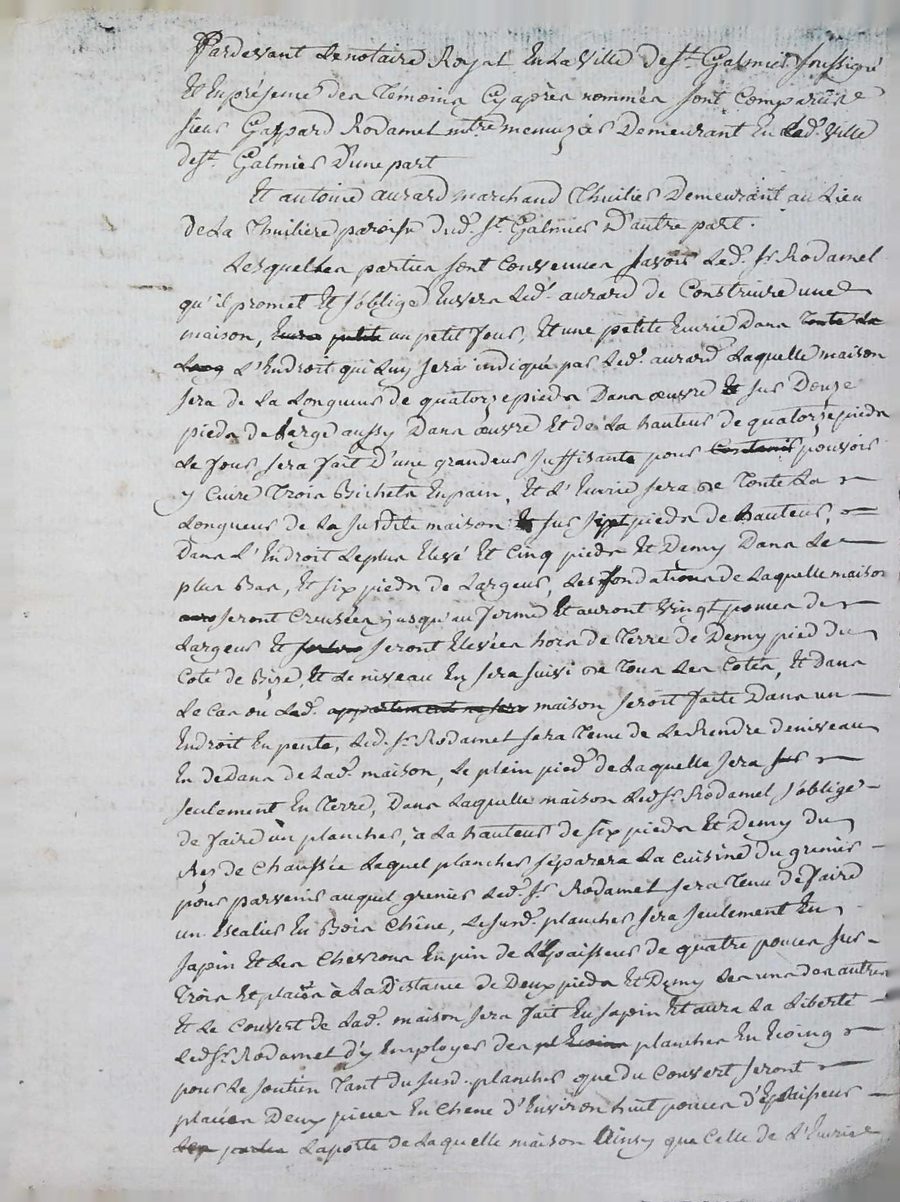 Pardevant Le notaire Royal En La Ville de St. Galmier soussigné
Et En présence des Témoins Cy après nommés sont Comparus
sieur Gaspard Rodamel mtre menuzier Demeurant En Led. Ville
de St. Galmier D'une part
Et antoine aurard marchand Thuilier Demeurant au Lieu
De La Thuiliere paroisse dud. St. Galmier D'autre part.
Lesquelles parties sont Convenues savoir Led. Sr. Rodamel
qu'il promet Et s'oblige Envers Led. aurard de Construire une
maison, un petit four, Et une petite Ecurie Dans toute La
Long L'Endroit qui Luy sera indiqué par Led. aurard Laquelle maison
sera de La Longueur de quatorze pieds Dans œuvre Et sur Douze
pieds de Large aussy Dans œuvre Et de La hauteur de quatorze pieds
Le four sera fait D'une grandeur suffisante pour Contenir pouvoir
y Cuire Trois Bichets En pain, Et L'Ecurie sera de Toute La
Longueur de La susdite maison Et sur sept pieds de hauteur,
Dans L'Endroit Le plus Elevé Et Cinq pieds Et Demy Dans Le
plus Bas, Et six pieds de Largeur, Les fondations de Laquelle maison
seront Creusées jusqu'au ferme Et auront Vingt pouces de
Largeur Et seront Elevées hors de Terre de Demy pied du
Coté de Bize, Et Le niveau En sera suivi de Tous Les Cotés, Et dans
Le Cas ou Lad. appartement ne sera maison seroit faite Dans un
Endroit En pente, Led. Sr. Rodamel sera Tenu de Le Rendre de niveau
En dedans de Lad. maison, Le plein pied de Laquelle sera sur
seulement En Terre, Dans Laquelle maison Led. Sr. Rodamel s'oblige
de faire un plancher, à La hauteur de six pieds Et Demy du
Rez de Chaussée Lequel plancher separera La cuisine du grenier
pour parvenir auquel grenier Led. Sr. Rodamel sera Tenu de faire
un Escalier En Bois Chêne, Le susd. plancher sera seulement En
sapin Et Les Chevrons En pin de L'Epaisseur de quatre pouces sur
Trois Et placés à La Distance de Deux pieds Et Demy Les uns des autres
Et Le Couvert de Lad. maison sera fait En sapin Et aura La Liberté
Led. Sr. Rodamel d'y Employer des planches En
pour Le soutien Tant du susd. plancher que du Couvert seront
placées Deux pieces En Chene d'Environ huit pouces d'Epaisseur
Les portes La porte de Laquelle maison Ainsy que Celle de L'Ecurie